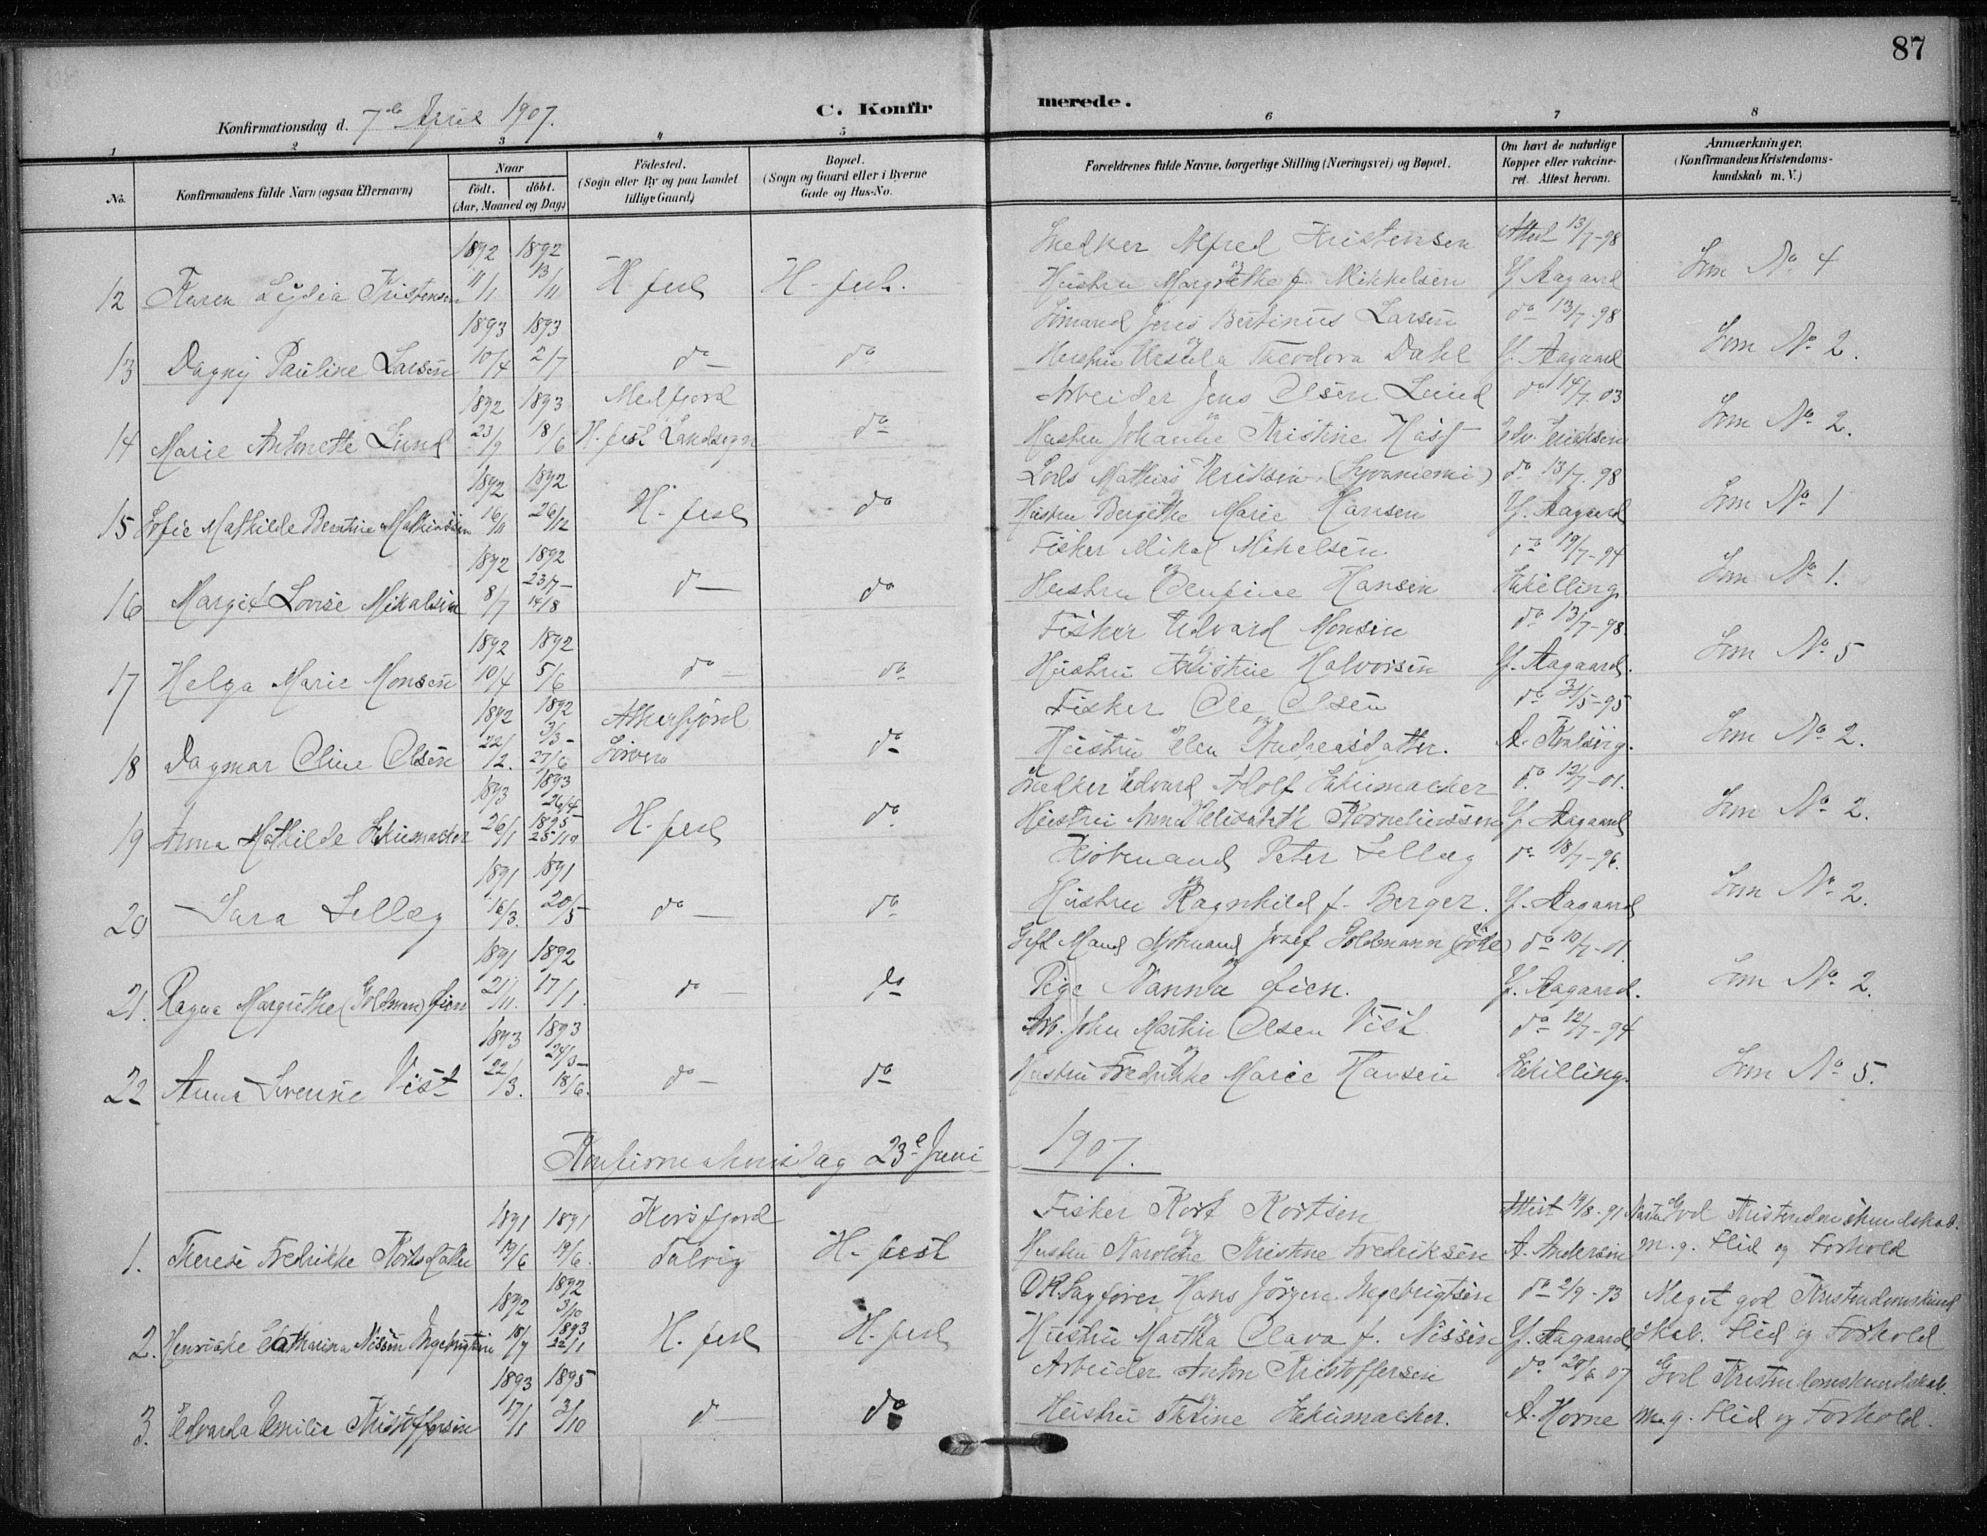 87
C. Konfirmerede.
Konfirmationsdag d. 7de April 1907.
1 2 3 4 5 6 7 8
No.
Konfirmandens fulde Navn (ogsaa Efternavn)
Naar
født. døbt.
(Aar, Maaned og Dag)
Födested.
(Sogn eller By og paa Landet
tillige Gaard)
Bopæl.
(Sogn og Gaard eller i Byerne
Gade og Hus-No.
Forældrenes fulde Navne, borgerlige Stilling (Næringsvei) og Bopæl.
Om havt de naturlige
Kopper eller vakcine-
ret. Attest herom.
Anmærkninger.
(Konfirmandens Kristendoms-
kundskab m. V.)
1892 1892 Snedker Alfred Kristensen Attest 13/7-98
12 Karen Lydia Kristensen 11/1 13/11 H.fest H.fest. Hustru Margrethe f. Mikkelsen Y. Aagaard Som No 4
1893 1893 Sømand Jens Bertinus Larsen do 13/7-98
13 Dagny Pauline Larsen 10/4 2/7 do do Hustru Ursula Theodora Dahl Y. Aagaard Som No 2.
1892 1893 Mefjord Arbeider Jens Olsen Lund do 14/7 03
14 Marie Antonette Lund 23/9 18/6 H.fest Landsogn do Hustru Johanne Kristine Edv. Eriksen Som No 2.
1892 1892 Lods Mathis Eriksen do 13/7 98
15 Sofie Mathilde Mathissen 16/11 26/12 H.fest do Hustru Bergithe Marie Hansen Y. Aagaard Som No 1
1892 1892 Fisker Mikal Mikelsen do 19/7-94
16 Margit Lovise Mikalsen 8/7 23/7- 14/8 do do Hustru Hansen Schilling. Som No 1.
1892 1892 Fisker Edvard Monsen do 13/7-98.
17 Helga Marie Monsen 10/4 5/6 do do Hustru Kristine Halvorsen Y. Aagaard. Som No 5
1892 1892 Fisker Ole Olsen do 31/5-95
18 Dagmar Oline Olsen 22/2. 3/3- 27/6 do Hustru Elen Andreasdatter. Som No 2.
1893 1893 Snedker Edvard Adolf Schumacher do 12/7-01.
19 Anna Mathilde Schumacher 26/1 26/4 1895 25/10 H.fest do Hustru Anna Elisabeth Korneliussen Y. Aagaard Som No 2.
1891 1891 Kjøbmand Peter Sellæg do 18/7-96.
20 Sara Sellæg 16/3. 20/5 do do Hustru Ragnhild f. Berger. Y. Aagaard Som No 2.
1891 1892 Gift Mand Josef Goldmann do 10/7-01.
21. Ragna Margrethe (Goldman) Sien 21/11. 17/1. do do Pige Nanna Sien. Y. Aagaard. Som No 2.
1893 1893 Arb. John Martin Olsen Vist do 12/7-94
22 Anna Sverine Vist 22/3. 24/3- 18/6. do do Hustru Fredrikke Marie Hansen Schilling. Som No 5.
Konfirmationsdag 23de Juni 1907.
1891 1891 Korsfjord Fisker Kort Kortsen Attest 19/8-91 Næsten God Kristendomskundskab.
1. Therese Fredrikke Kortsdatter 19/6 19/6. Talvig H.fest Hustru Karoline Kristine Fredriksen A. Andersen M.g. Flid og Forhold
1892 1892 3/10 O.R.Sagfører Hans Jörgen Ingebrigtsen do 2/9-93 Meget god Kristendomskund
2. Henrikke Catharina Nissen Ingebrigtsen 18/7 1893 22/1 H.fest H.fest Hustru Martha Olava f. Nissen Y. Aagaard skab. Flid og Forhold
1893 1895 Arbeider Anton Kristoffersen do 20/6 07 God Kristendomskundskab.
3. Edvarda Emilie Kristoffersen 17/1 3/10 do do Hustru Thrine Schumacher. A. Horne M.g. Flid og Forhold.